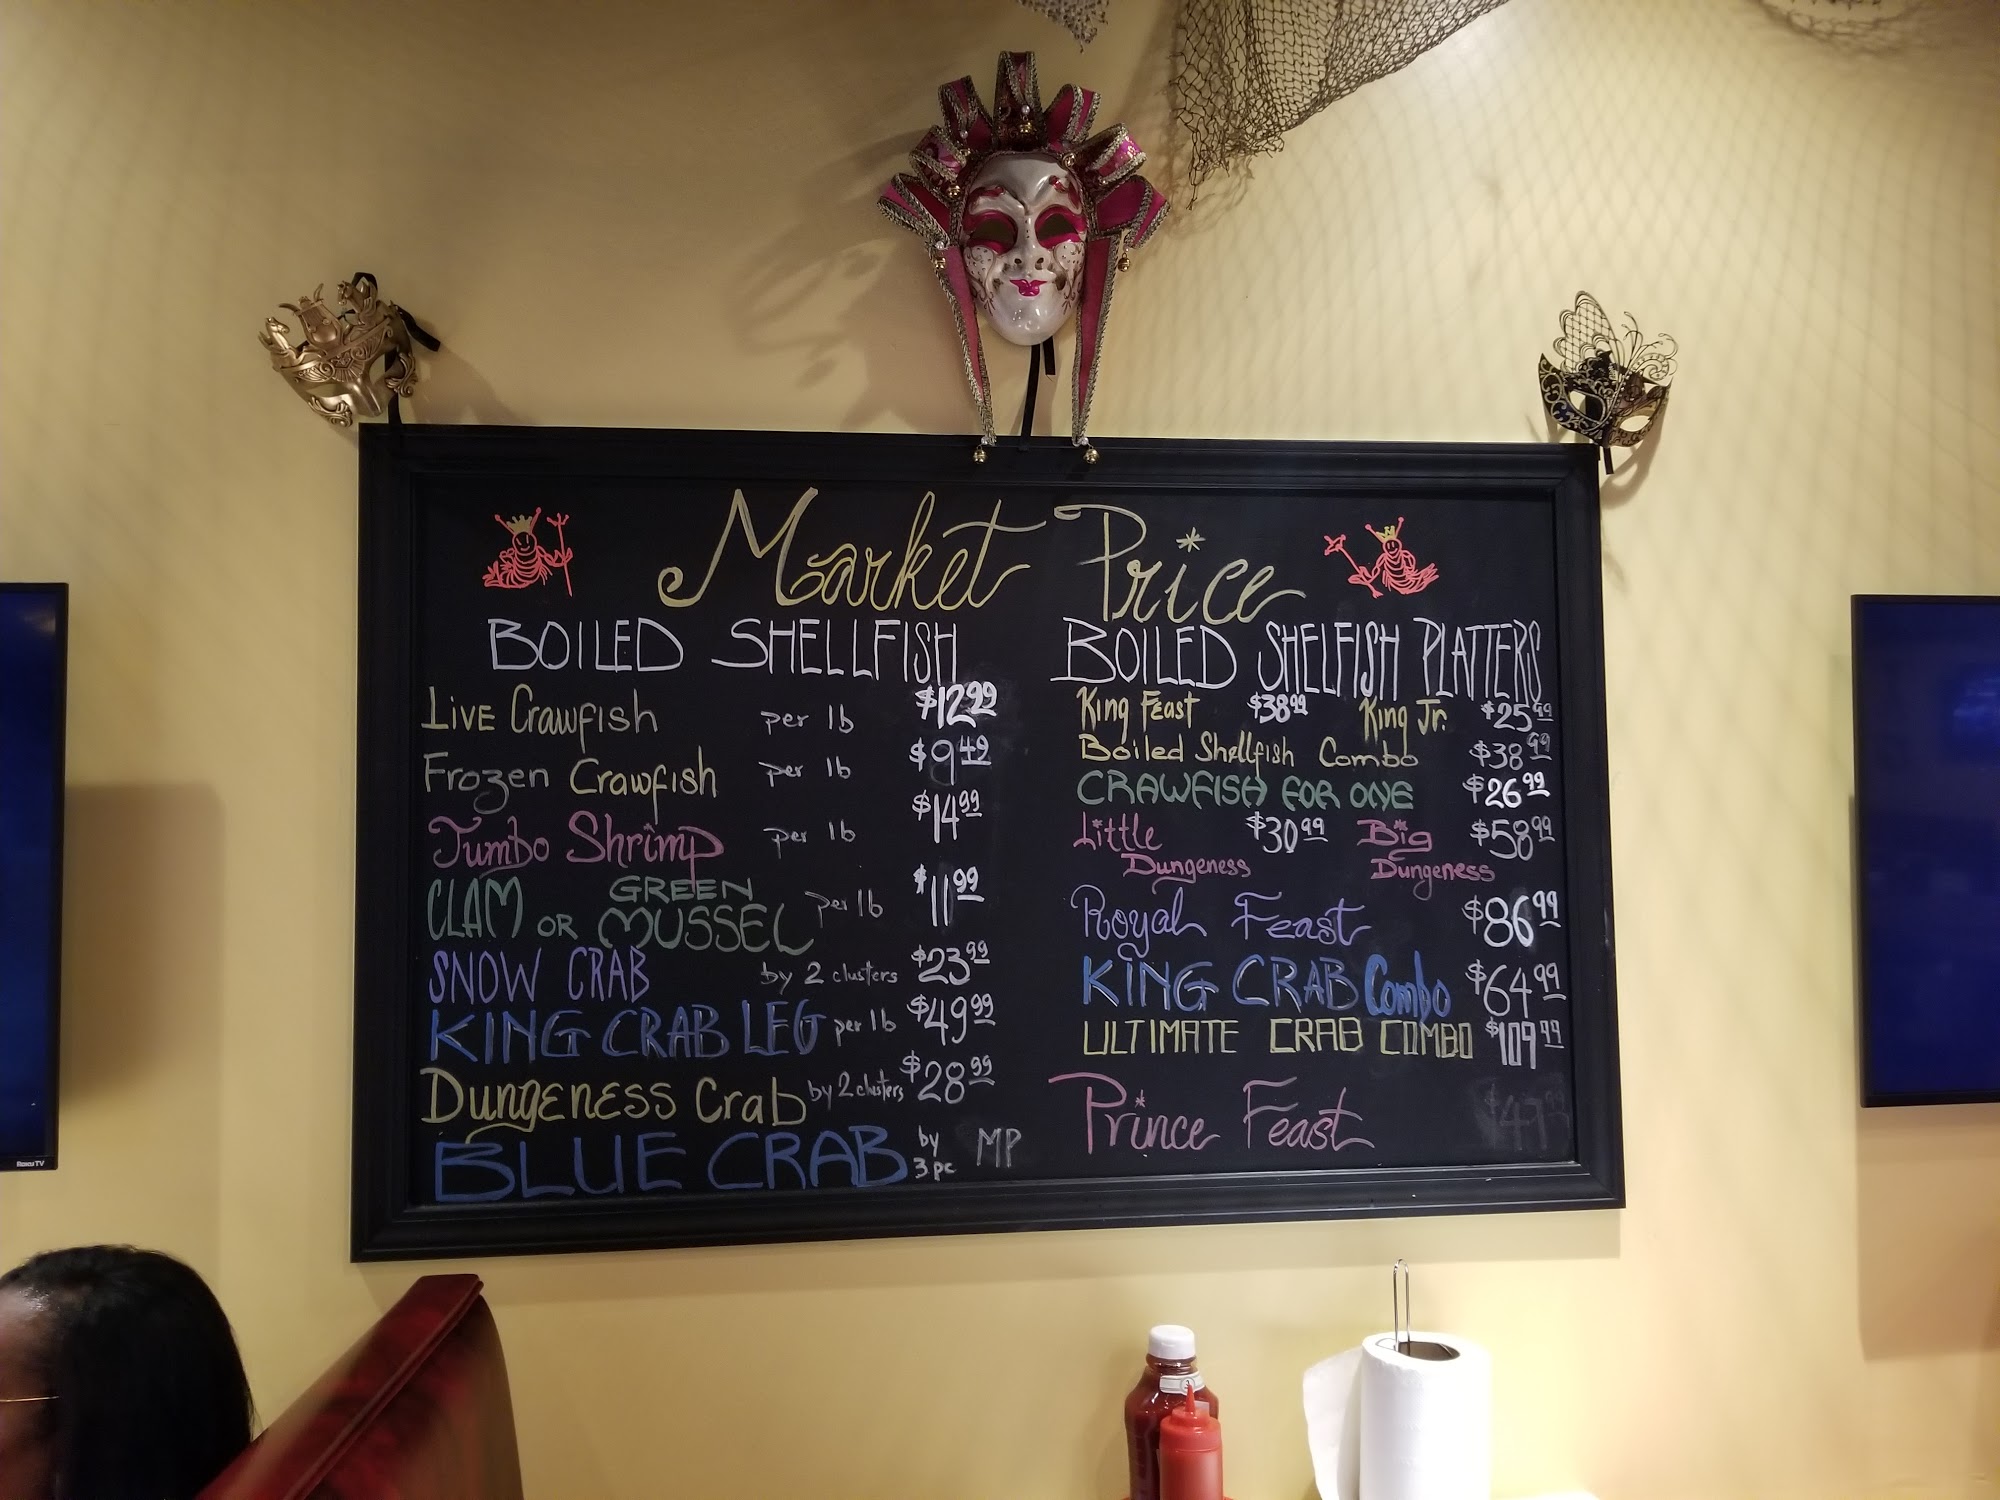 Market Price
BOILED SHELLFISH
Live Crawfish per lb $12.99
Frozen Crawfish per lb $9.49
Jumbo Shrimp per lb $14.99
CLAM OR GREEN MUSSEL per lb $11.99
SNOW CRAB by 2 clusters $23.99
KING CRAB LEG per lb $49.99
Dungeness Crab by 2 clusters $28.99
BLUE CRAB by 3 pc MP
BOILED SHELFISH PLATTERS
King Feast $38.99 King Jr. $25.99
Boiled Shellfish Combo $38.99
CRAWFISH FOR ONE $26.99
Little Dungeness $30.99 Big Dungeness $58.99
Royal Feast $86.99
KING CRAB Combo $64.99
ULTIMATE CRAB COMBO $109.99
Prince Feast
Roku TV